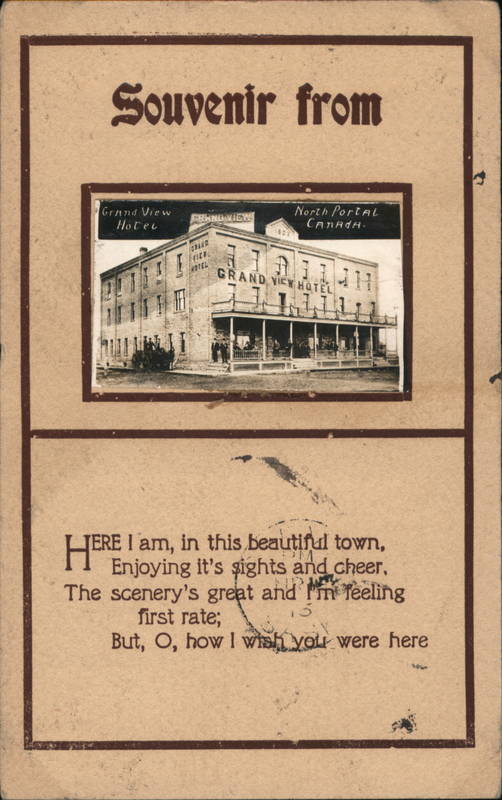 Souvenir from
Grand View
Hotel
North Portal
Canada.
GRAND VIEW
GRAND
VIEW
HOTEL
GRAND VIEW HOTEL
HERE I am, in this beautiful town,
Enjoying it's sights and cheer,
The scenery's great and I'm feeling
first rate;
But, O, how I wish you were here